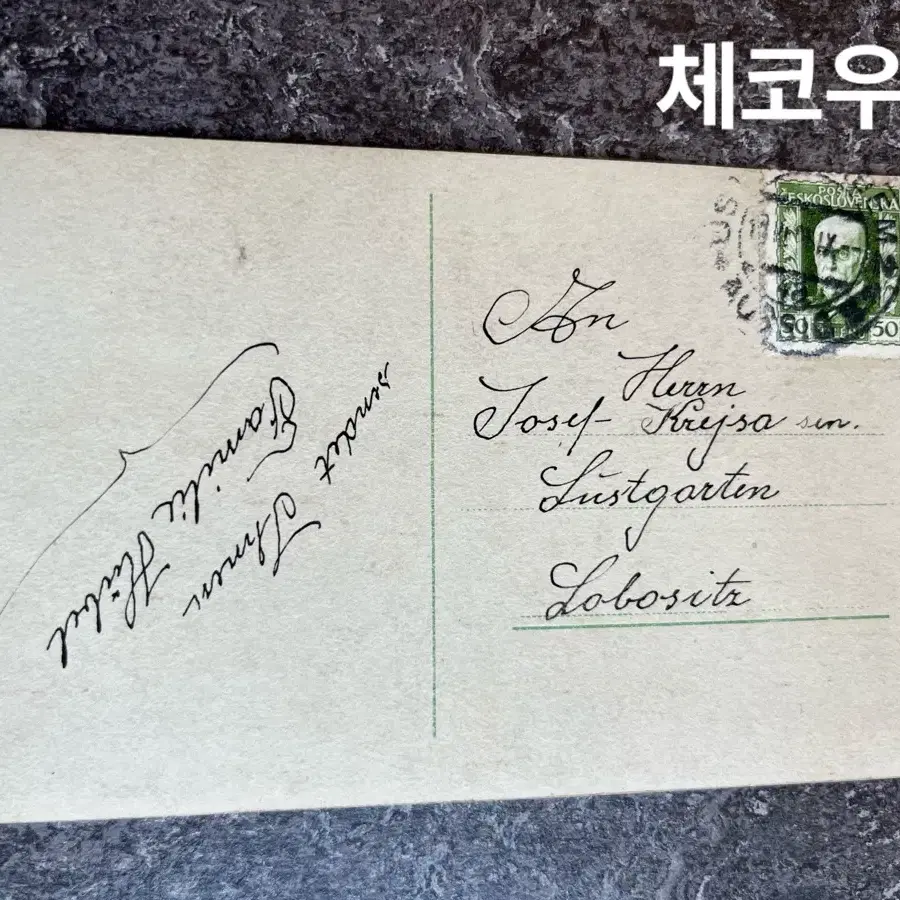 체코우
sendet Ihnen
Familie Hübel
POŠTA
ČESKOSLOVENSKÁ
50
50
An
Herrn
Josef Krejsa sen.
Lustgarten
Lobositz